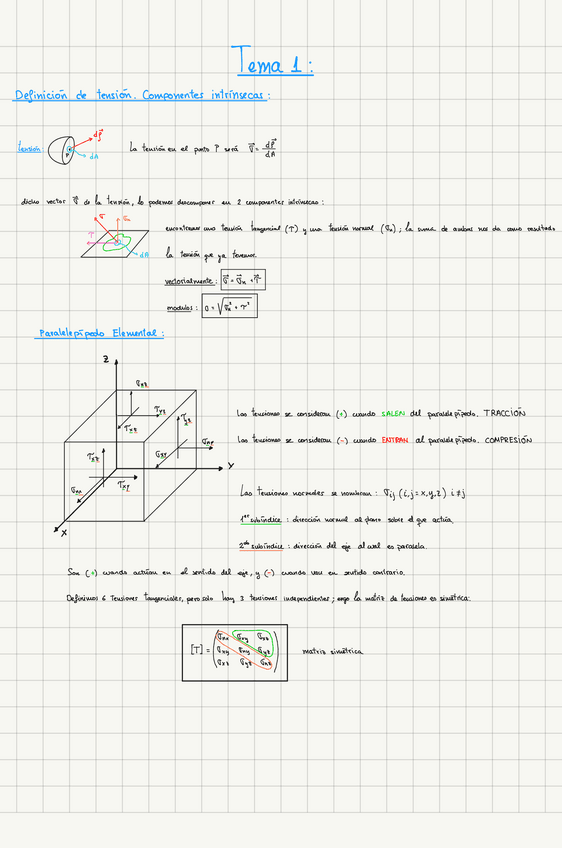 Tema 1:
Definición de tensión. Componentes intrínsecas:
tensión:
dF
P
dA
La tensión en el punto P será σ⃗ = dF⃗/dA
dicho vector σ⃗ de la tensión, lo podemos descomponer en 2 componentes intrínsecas:
σ
σn
τ
dA
encontramos una tensión tangencial (τ) y una tensión normal (σn); la suma de ambas nos da como resultado
la tensión que ya tenemos.
vectorialmente: σ⃗ = σ⃗n + τ⃗
modulos: σ = √σn² + τ²
Paralelepípedo Elemental:
z
y
x
Las tensiones se consideran (+) cuando SALEN del paralelepípedo. TRACCIÓN
Las tensiones se consideran (-) cuando ENTRAN al paralelepípedo. COMPRESIÓN
Las tensiones normales se nombran: σij (i,j = x,y,z) i ≠ j
1er subíndice: dirección normal al plano sobre el que actúa.
2do subíndice: dirección del eje al cual es paralela.
Son (+) cuando actúan en el sentido del eje, y (-) cuando van en sentido contrario.
Definimos 6 Tensiones tangenciales, pero solo hay 3 tensiones independientes; ergo la matriz de tensiones es simétrica:
[T] =
matriz simétrica